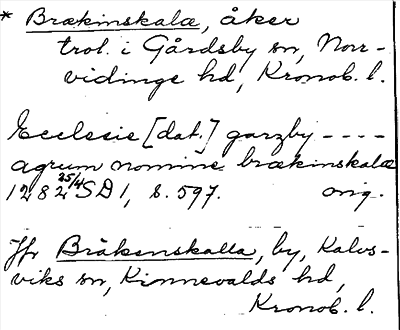 * Brækinskalæ, åker
trol. i Gårdsby sn, Norr-
vidinge hd, Kronob. l.
Ecclesie [dat.] garzby ----
agrum nomine brækinskalæ
1282 25/4 SD 1, s. 597. orig.
Jfr Bråkenskalla, by, Kalvs-
viks sn, Kinnevalds hd,
Kronob. l.